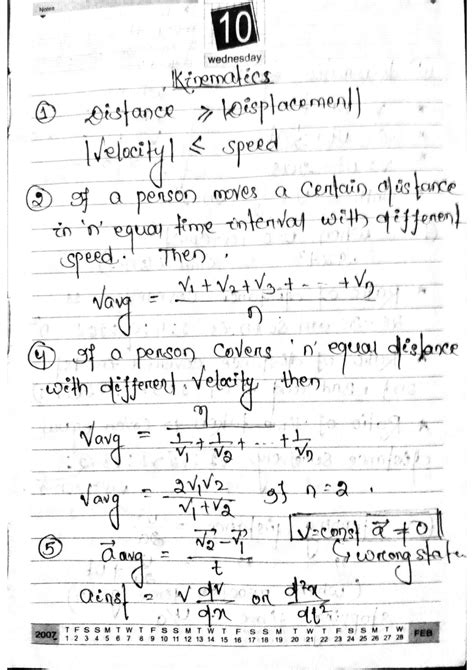 Notes
10
wednesday
Kinematics
① Distance ⩾ |Displacement|
|Velocity| ≤ speed
② If a person moves a certain distance
in 'n' equal time interval with different
speed. Then,
Vavg = (V₁ + V₂ + V₃ + - - - + Vn) / n
④ If a person covers 'n' equal distance
with different velocity, then
Vavg = n / (1/V₁ + 1/V₂ + ... + 1/Vn)
Vavg = 2V₁V₂ / (V₁ + V₂) if n = 2.
V=const a⃗ ≠ 0
⑤ a⃗avg = (V₂⃗ - V₁⃗) / t
wrong state
ainst = V dv/dx or d²x/dt²
2007 T F S S M T W T F S S M T W T F S S M T W T F S S M T W FEB
1 2 3 4 5 6 7 8 9 10 11 12 13 14 15 16 17 18 19 20 21 22 23 24 25 26 27 28